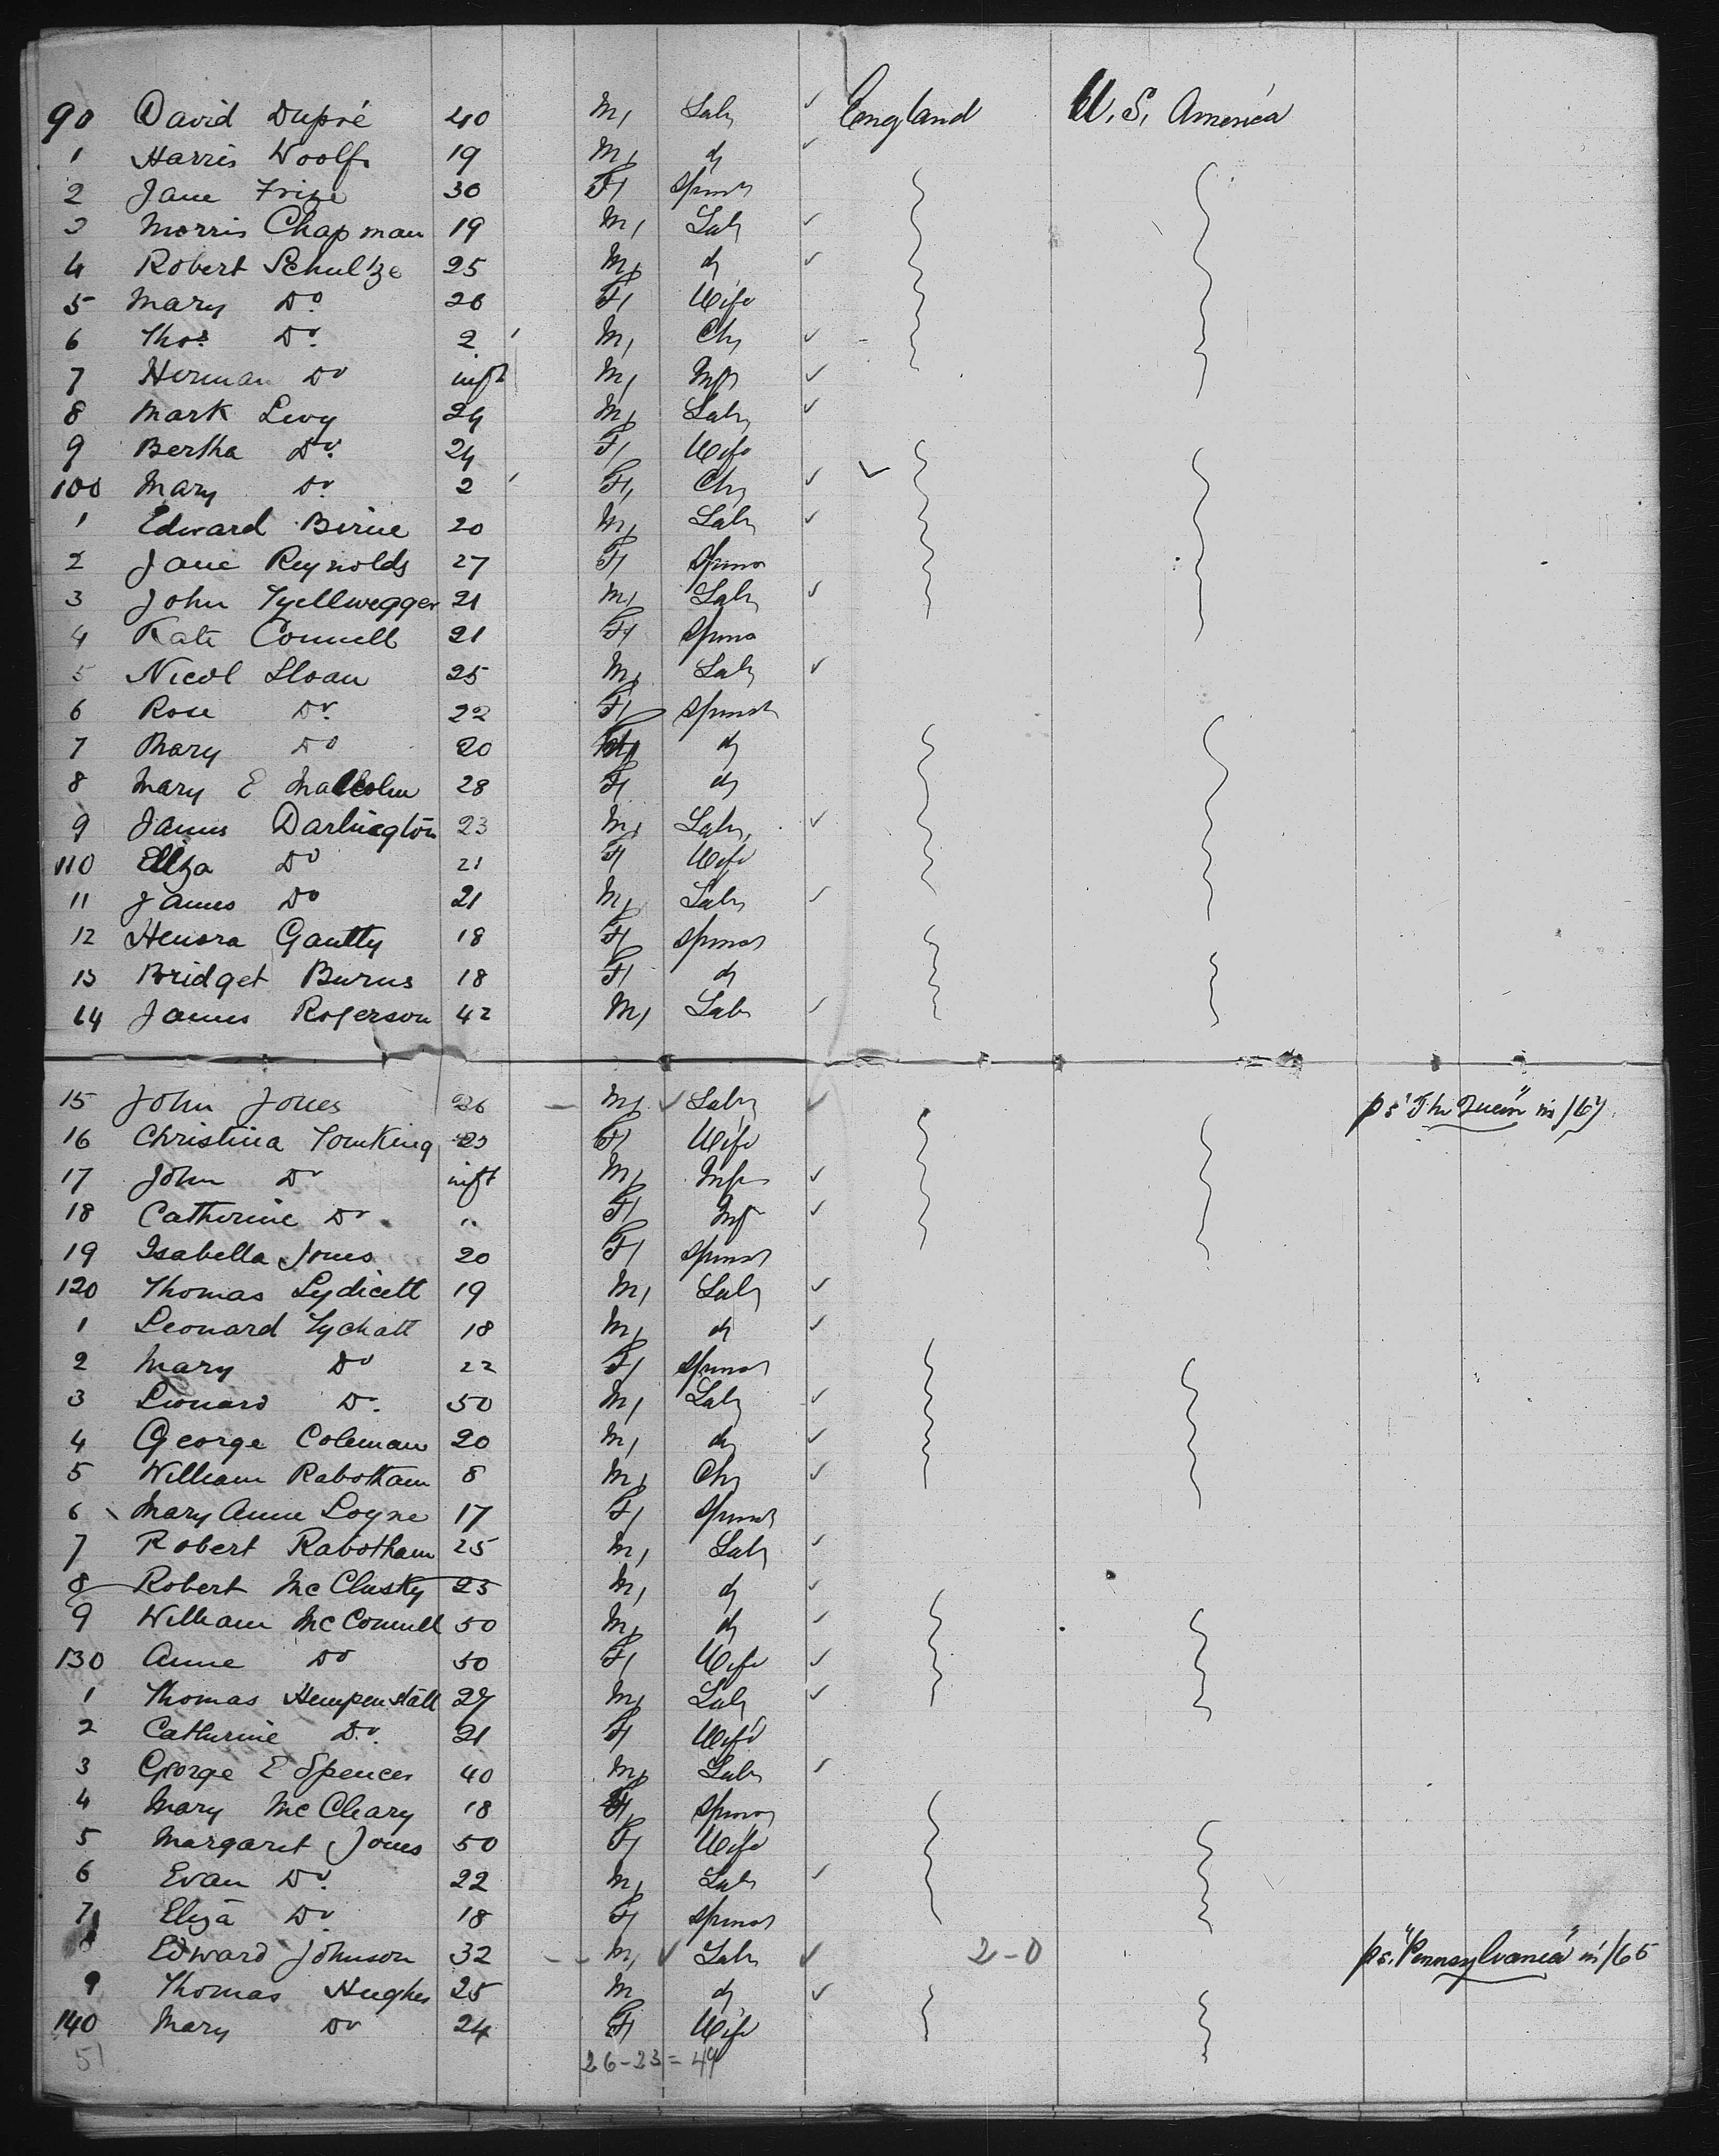 90 David Dupré 40 M, Labr ✓ England U.S. America
1 Harris Woolf 19 M, do ✓
2 Jane Frize 30 F, Spinst
3 Morris Chapman 19 M, Labr ✓
4 Robert Schultze 25 M, do ✓
5 Mary Do. 26 F, Wife
6 Thos. Do. 2 M, Ch, ✓
7 Herman Do inft M, Inft ✓
8 Mark Levy 24 M, Labr ✓
9 Bertha Do. 24 F, Wife
100 Mary Do. 2 F, Ch, ✓ ✓
1 Edward Birne 20 M, Labr ✓
2 Jane Reynolds 27 F, Spins
3 John 21 M, Labr ✓
4 Kate Connell 21 F, Spins
5 Nicol Sloan 25 M, Labr ✓
6 Rose Do. 22 F, Spinst
7 Mary Do 20 do
8 Mary E Malcolm 28 F, do
9 James Darlington 23 M, Labr, ✓
110 Eliza Do 21 F, Wife
11 James Do 21 M, Labr ✓
12 Henora Gautty 18 F, Spinst
13 Bridget Burns 18 F, do
14 James Rogerson 42 M, Labr ✓
15 John Jones 26 — M, ✓ Labr ✓ ps "The Queen" in /67
16 Christina Tomking 23 F, Wife
17 John Do inft M, Inft ✓
18 Catherine Do " F, Inf ✓
19 Isabella Jones 20 F, Spinst
120 Thomas Lydicett 19 M, Labr ✓
1 Leonard Lychatt 18 M, do ✓
2 Mary Do 22 F, Spinst
3 Leonard Do. 50 M, Labr ✓
4 George Coleman 20 M, do ✓
5 William Rabotham 8 M, Ch, ✓
6 Mary Anne Loyne 17 F, Spinst
7 Robert Rabotham 25 M, Labr ✓
8 Robert McClusky 25 M, do ✓
9 William McConnell 50 M, do ✓
130 Anne Do 50 F, Wife ✓
1 Thomas Hempenstall 27 M, Labr ✓
2 Catherine Do. 21 F, Wife
3 George E Spencer 40 M, Labr ✓
4 Mary McCleary 18 F, Spins
5 Margaret Jones 50 F, Wife
6 Evan Do. 22 M, Labr ✓
7 Eliza Do 18 F, Spinst
8 Edward Johnson 32 -- M, ✓ Labr ✓ 2-0 ps. "Pennsylvania" in /65
9 Thomas Hughes 25 M do ✓
140 Mary Do 24 F, Wife
51 26-23=49